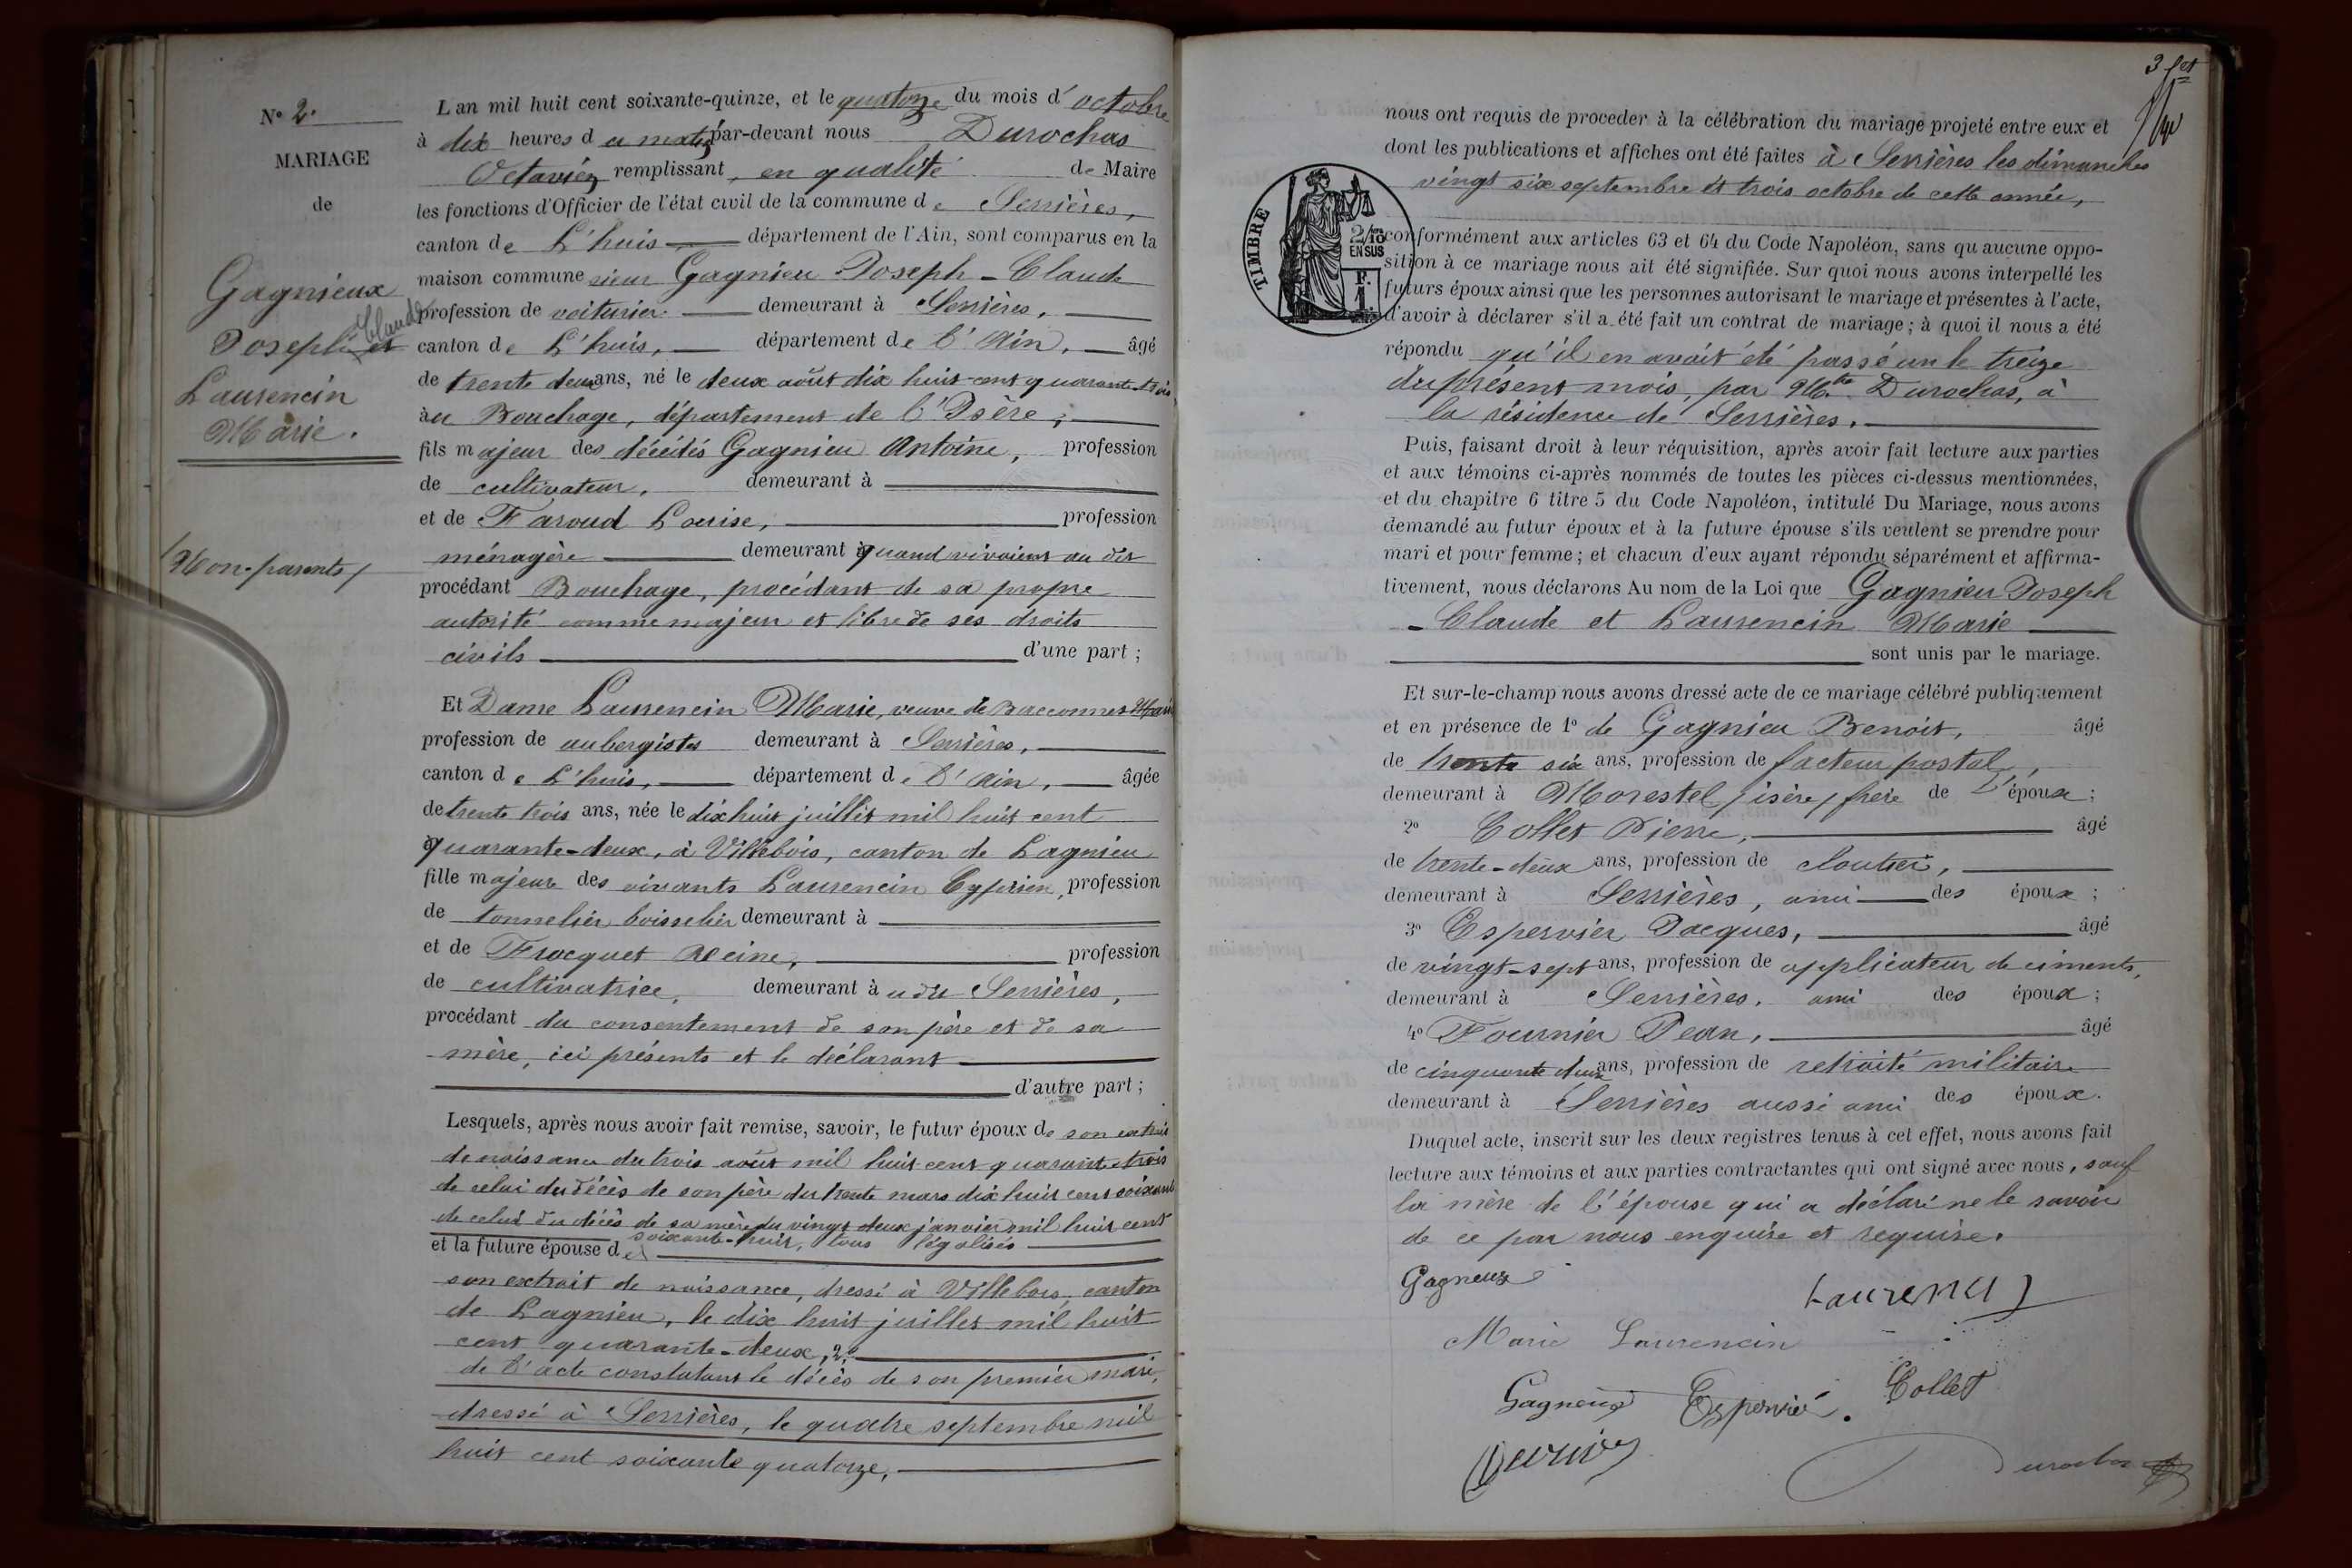 N° 2.
MARIAGE
de
Gagnieux
Joseph Claude et
Laurencin
Marie.
Non-parents
L'an mil huit cent soixante-quinze, et le quatorze du mois d'octobre
à dix heures du matin par-devant nous Durochas
Octavien remplissant, en qualité de Maire
les fonctions d'Officier de l'état civil de la commune de Serrières,
canton de L'huis département de l'Ain, sont comparus en la
maison commune sieur Gagnieu Joseph-Claude
profession de voiturier demeurant à Serrières,
canton de L'huis, département de l'Ain, âgé
de trente deux ans, né le deux août dix huit cent quarante-trois
au Bouchage, département de l'Isère,
fils majeur des décédés Gagnieu Antoine, profession
de cultivateur, demeurant à
et de Faroud Louise, profession
ménagère demeurant quand vivaient au dit
procédant Bouchage, procédant de sa propre
autorité comme majeur et libre de ses droits
civils d'une part ;
Et Dame Laurencin Marie, veuve de Bacconnet
profession de aubergiste demeurant à Serrières,
canton de L'huis, département de l'Ain, âgée
de trente trois ans, née le dix huit juillet mil huit cent
quarante-deux, à Villebois, canton de Lagnieu
fille majeure des vivants Laurencin Cyprien, profession
de tonnelier boisselier demeurant à
et de Frocquet Reine, profession
de cultivatrice, demeurant à udit Serrières,
procédant du consentement de son père et de sa
mère, ici présents et le déclarant
d'autre part ;
Lesquels, après nous avoir fait remise, savoir, le futur époux de son extrait
de naissance du trois août mil huit cent quarante trois
de celui du décès de son père du trente mars dix huit cent soixante
de celui du décès de sa mère du vingt deux janvier mil huit cent
soixante-huit, tous légalisés
et la future épouse de
son extrait de naissance, dressé à Villebois, canton
de Lagnieu, le dix huit juillet mil huit
cent quarante-deux, 2°
de l'acte constatant le décès de son premier mari,
dressé à Serrières, le quatre septembre mil
huit cent soixante quatorze,
3
nous ont requis de proceder à la célébration du mariage projeté entre eux et
dont les publications et affiches ont été faites à Serrières les dimanches
vingt six septembre et trois octobre de cette année,
TIMBRE
2/10
EN SUS
F.
1
conformément aux articles 63 et 64 du Code Napoléon, sans qu'aucune oppo-
sition à ce mariage nous ait été signifiée. Sur quoi nous avons interpellé les
futurs époux ainsi que les personnes autorisant le mariage et présentes à l'acte,
d'avoir à déclarer s'il a été fait un contrat de mariage ; à quoi il nous a été
répondu qu'il en avait été passé un le treize
du présent mois, par Mtre Durochas, à
la résidence de Serrières.
Puis, faisant droit à leur réquisition, après avoir fait lecture aux parties
et aux témoins ci-après nommés de toutes les pièces ci-dessus mentionnées,
et du chapitre 6 titre 5 du Code Napoléon, intitulé Du Mariage, nous avons
demandé au futur époux et à la future épouse s'ils veulent se prendre pour
mari et pour femme ; et chacun d'eux ayant répondu séparément et affirma-
tivement, nous déclarons Au nom de la Loi que Gagnieu Joseph
-Claude et Laurencin Marie
sont unis par le mariage.
Et sur-le-champ nous avons dressé acte de ce mariage célébré publiquement
et en présence de 1° de Gagnieu Benoit, âgé
de trente six ans, profession de facteur postal,
demeurant à Morestel (isère) frère de L'époux ;
2° Collet Pierre, âgé
de trente-deux ans, profession de cloutier,
demeurant à Serrières, ami des époux ;
3° Espervier Jacques, âgé
de vingt-sept ans, profession de applicateur de ciments,
demeurant à Serrières, ami des époux ;
4° Fournier Jean, âgé
de cinquante deux ans, profession de retraité militaire
demeurant à Serrières aussi ami des époux.
Duquel acte, inscrit sur les deux registres tenus à cet effet, nous avons fait
lecture aux témoins et aux parties contractantes qui ont signé avec nous, sauf
la mère de l'épouse qui a déclaré ne le savoir
de ce par nous enquise et requise.
Gagneux
Laurencin
Marie Laurencin
Gagneux Espervié. Collet
Durochas